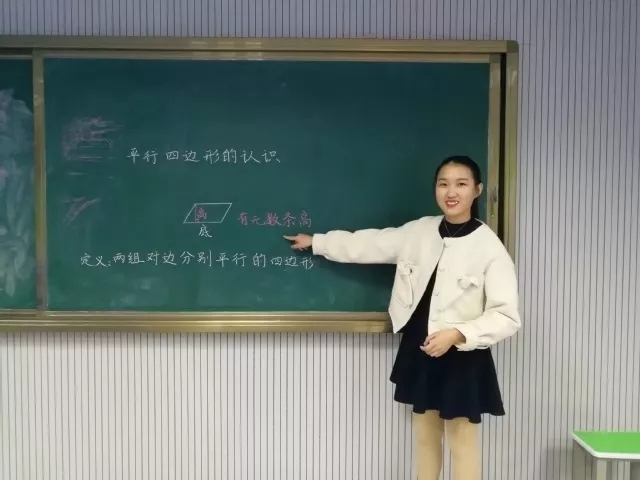 平行四边形的认识
高 有无数条高
底
定义:两组对边分别平行的四边形